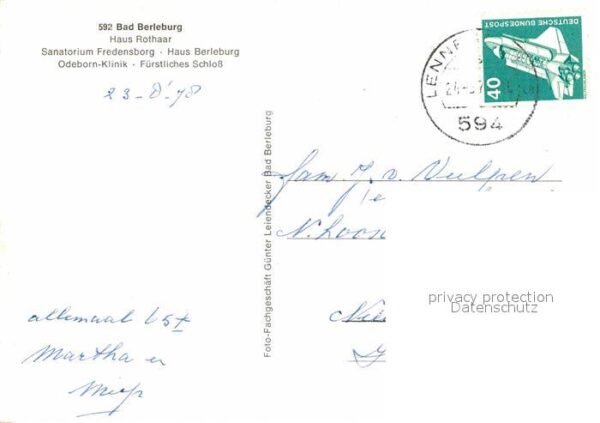 592 Bad Berleburg
Haus Rothaar
Sanatorium Fredensborg · Haus Berleburg
Odeborn-Klinik · Fürstliches Schloß
23-8-78
DEUTSCHE BUNDESPOST
40
LENNE
594
Foto-Fachgeschäft Günter Leiendecker Bad Berleburg
Fam J. v. Vulpen
N. Loon
privacy protection
Datenschutz
Nie
allemaal
Martha en
Miep